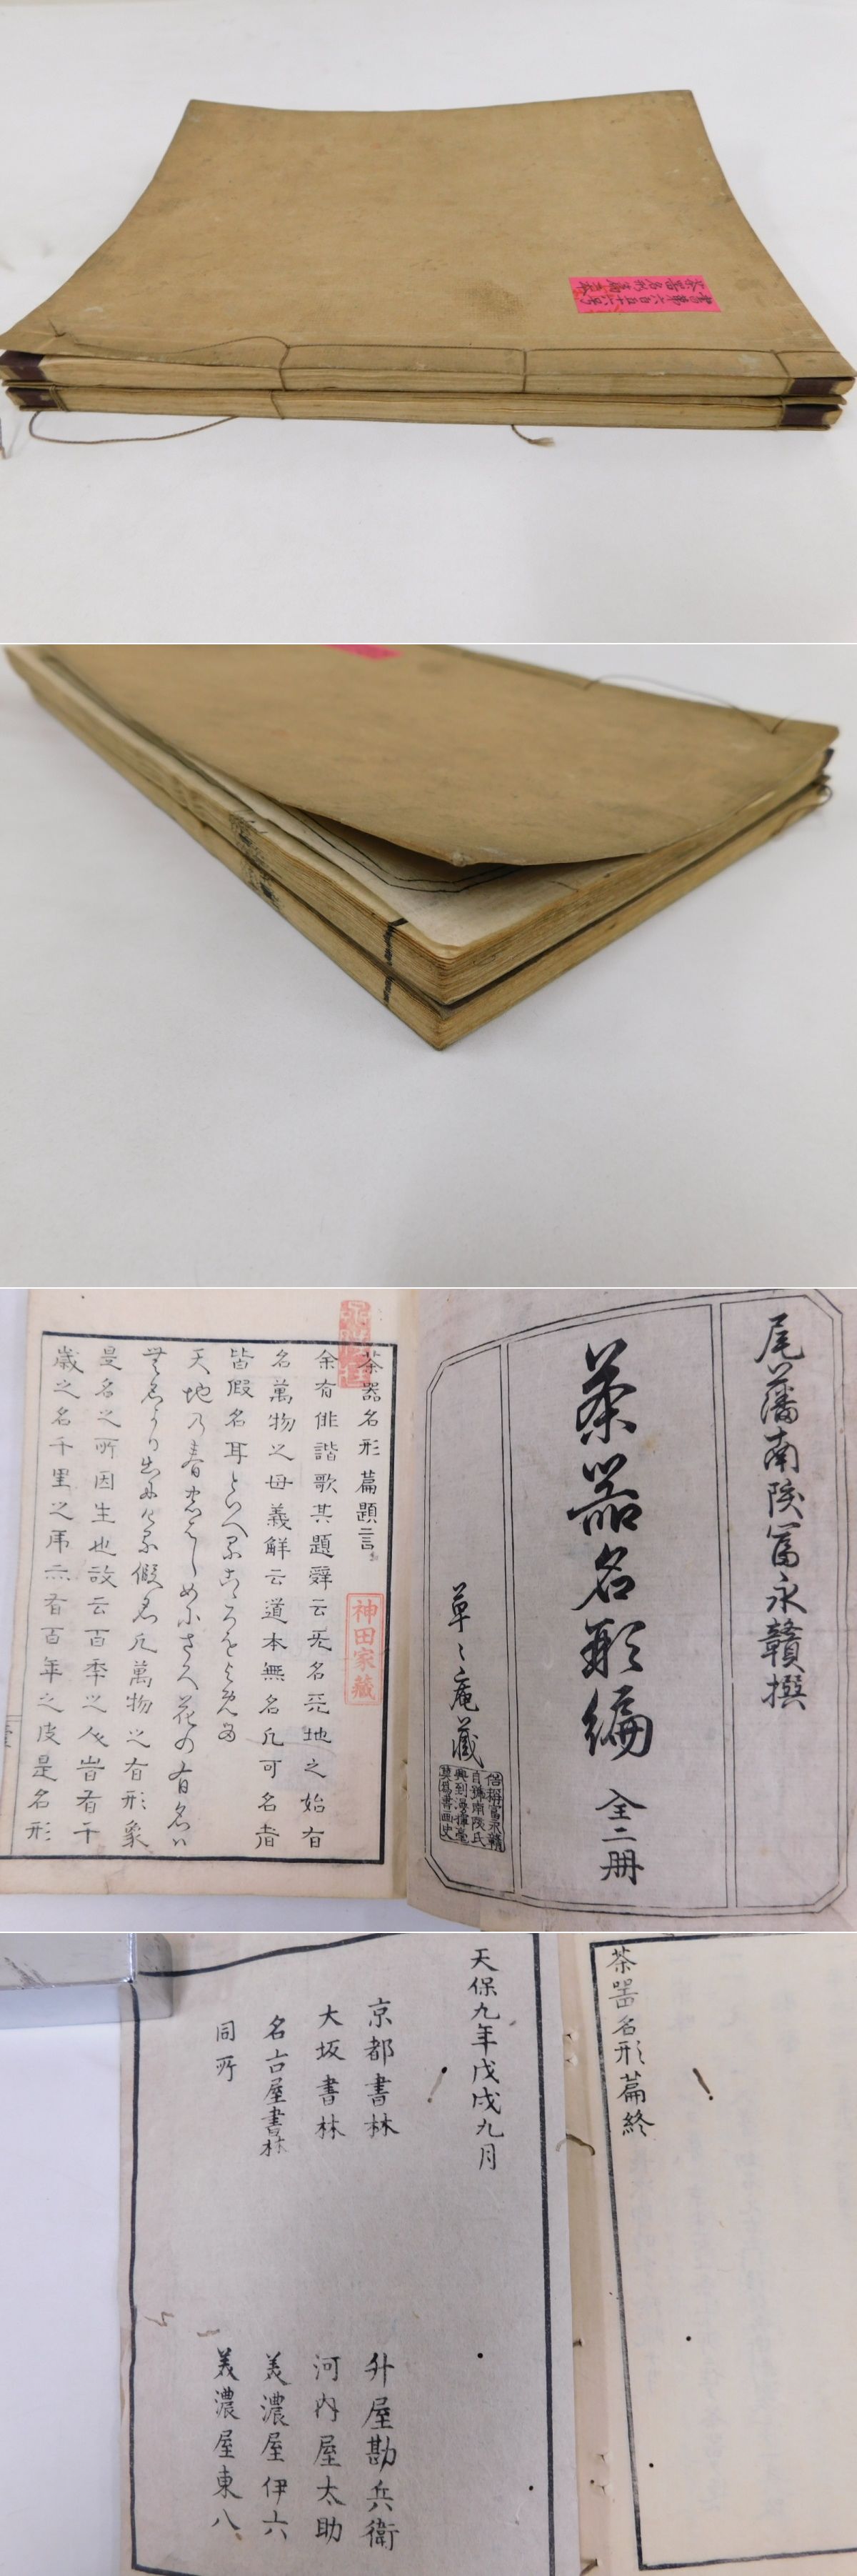 書第六百五十六号
茶器名形編 二本
尾藩南陔富永贛撰
茶器名形編 全二冊
草〻庵蔵
茶器名形篇題言
神田家蔵
余有俳諧歌其題辞云无名天地之始有
名萬物之母義解云道本無名凡可名者
皆假名耳といへる
天地乃春
假名凡萬物之有形象
是名之所因生也故云百年之人皆有千
歳之名千里之馬無有百年之皮是名形
茶器名形篇終
天保九年戊戌九月
京都書林 升屋勘兵衛
大坂書林 河内屋太助
名古屋書林 美濃屋伊六
同所 美濃屋東八